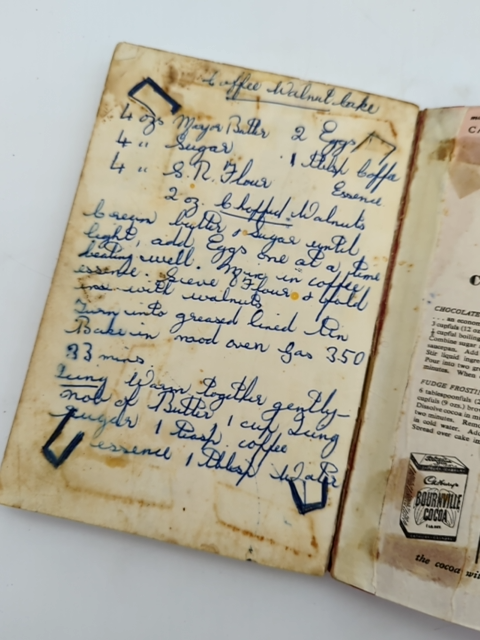 Coffee Walnut Cake
4 ozs Butter 2 Eggs
4 " Sugar 1 Coffee
4 " S.R. Flour Essence
2 oz. Chopped Walnuts
Cream butter & Sugar until
light, add Eggs one at a time
beating well. Mix in coffee
essence. Sieve Flour & fold
in with walnuts
Turn into greased lined tin
Bake in mod oven Gas 350
33 mins
Warm together gently
Butter 1 cup
sugar 1 coffee
essence 1 Water
C
CHOCOLATE
... an econom
3 capfuls (12 oz
½ capful boiling
Combine sugar
saucepan. Add
Stir liquid ingre
Pour into two gre
minutes. When
FUDGE FROSTI
4 tablespoonfuls (2
capfuls (9 ozs.) brow
Dissolve cocoa in m
two minutes. Remo
in cold water. Add
Spread over cake in
Cadbury's
BOURNVILLE
COCOA
the cocoa wi